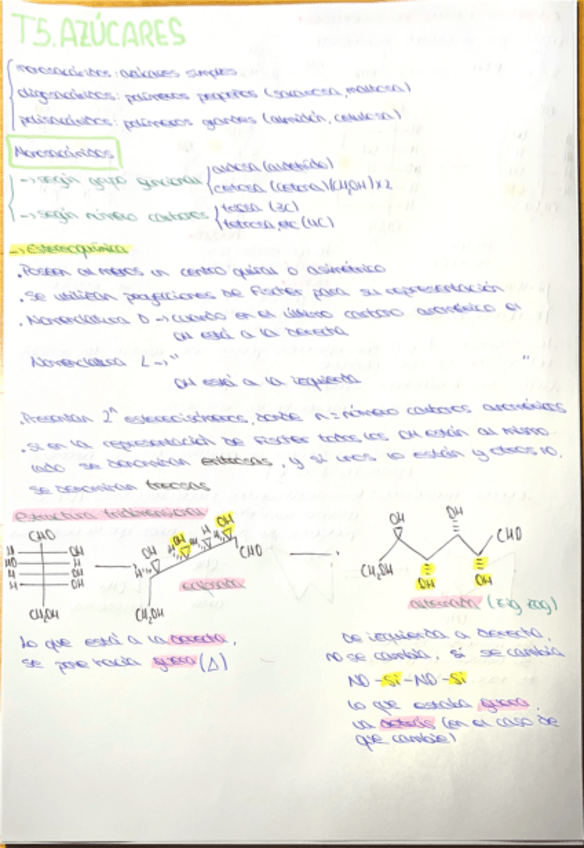 T5.AZÚCARES
monosacáridos: azúcares simples
oligosacáridos: polímeros pequeños (sacarosa, maltosa)
polisacáridos: polímeros grandes (almidón, celulosa)
Monosacáridos
→ según grupo funcional
aldosa (aldehído)
cetosa (cetona) (CH2OH)x2
→ según número carbonos
triosa (3C)
tetrosa, etc (4C)
→ Estereoquímica
. Poseen al menos un centro quiral o asimétrico
. Se utilizan proyecciones de Fischer para su representación
. Nomenclatura D → cuando en el último carbono anomérico el
OH está a la derecha
Nomenclatura L → " "
OH está a la izquierda
. Presentan 2ⁿ estereoisómeros, donde n = número carbonos anoméricos
. si en la representación de Fischer todos los OH están al mismo
lado se denominan eritrosas, y si unos lo están y otros no,
se denominan treosas
estructura tridimensional
CHO
H OH
HO H
H OH
H OH
CH2OH
H OH H OH H OH OH
CHO
CH2OH
eclipsada
OH OH
CHO
CH2OH
OH OH
alternada (zig zag)
Lo que está a la derecha,
se pone hacia fuera (Δ)
De izquierda a derecha,
no se cambia, sí se cambia
NO-Sí-NO-Sí
Lo que estaba fuera,
va detrás (en el caso de
que cambie)